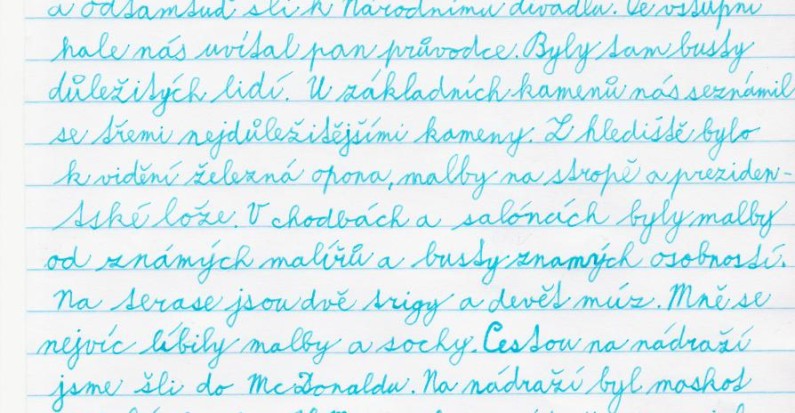 a odtamtud šli k Národnímu divadlu. Ve vstupní
hale nás uvítal pan průvodce. Byly tam busty
důležitých lidí. U základních kamenů nás seznámil
se třemi nejdůležitějšími kameny. Z hlediště bylo
k vidění železná opona, malby na stropě a preziden-
tské lože. V chodbách a salóncích byly malby
od známých malířů a busty znamých osobností.
Na terase jsou dvě trigy a devět múz. Mně se
nejvíc líbily malby a sochy. Cestou na nádraží
jsme šli do McDonaldu. Na nádraží byl maskot